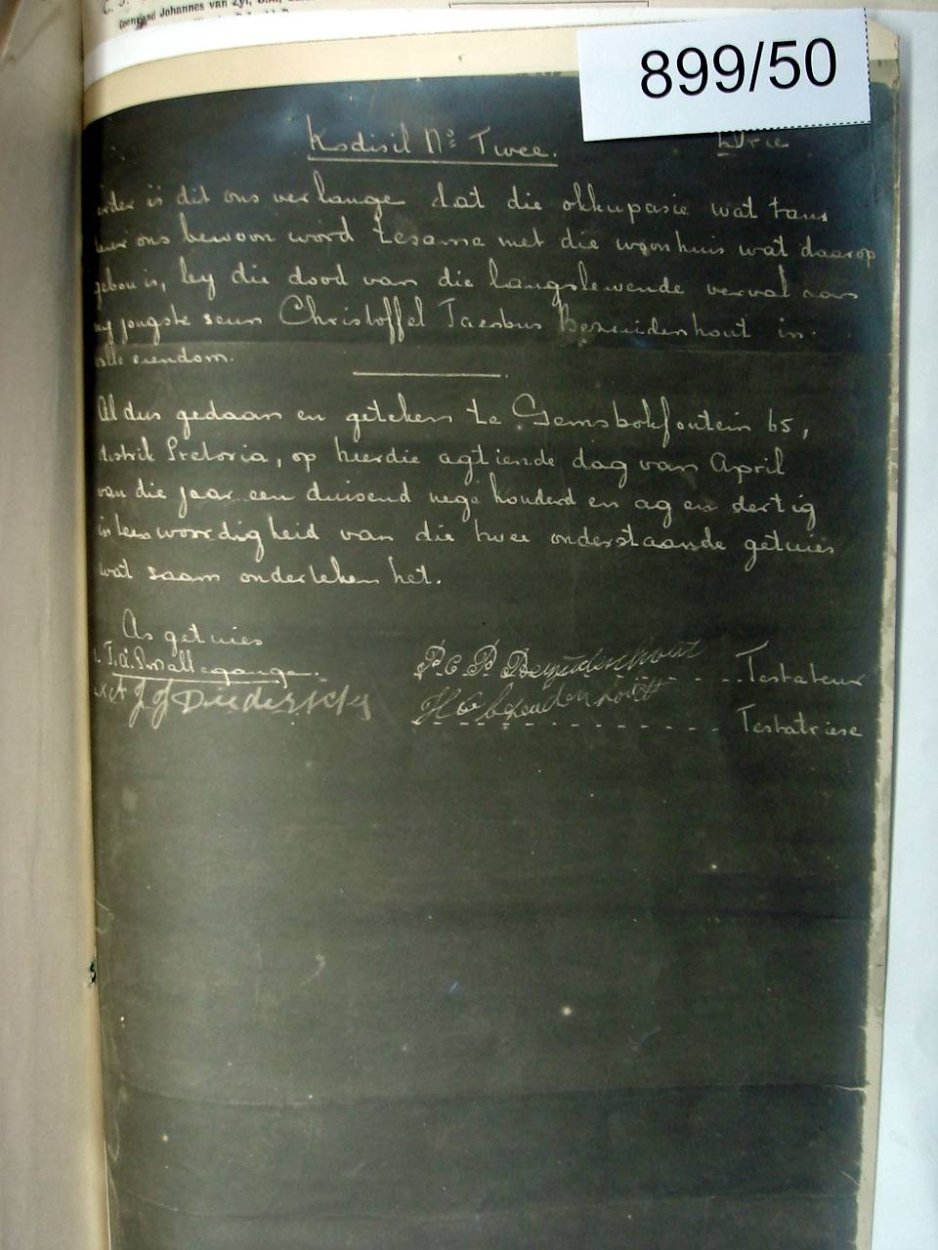 Johannes van Zyl,
899/50
Kodisil No. Twee. Drie
is dit ons verlange dat die okkupasie wat tans
ons bewoon word tesame met die woonhuis wat daarop
gebou is, by die dood van die langslewende verval aan
jongste seun Christoffel Jacobus Bezuidenhout in
eiendom.
Aldus gedaan en geteken te Gemsbokfontein 65,
distrik Pretoria, op hierdie agtiende dag van April
van die jaar een duisend nege honderd en ag en dertig
in teenwoordigheid van die twee onderstaande getuies
wat saam onderteken het.
As getuies
P. C. P. Bezuidenhout Testateur
J. J. Diedericks
Testatriese